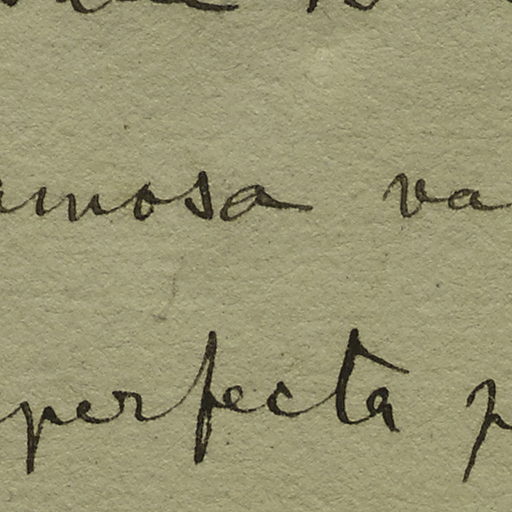 amosa va
perfecta p